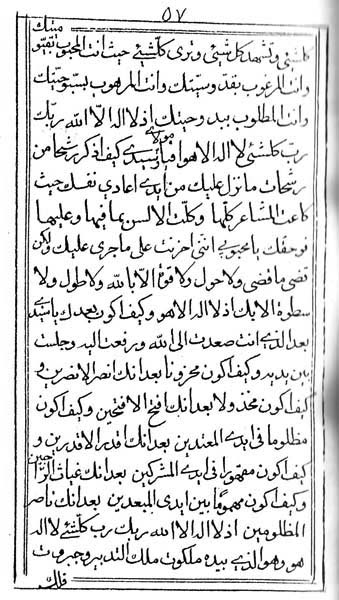 ٥٧
كلشئ وتشهد كل شئ وترى كلشئ حيث انت المحبوب بقيوميتك
وانت المرغوب بقدوسيتك وانت المرهوب بسبوحيتك
وانت المطلوب بيدوحيتك اذ لا اله الا الله ربك
رب كلشئ لا اله الا هو فيا مولاى وسيدى كيف اذكر رشحا من
رشحات ما نزل عليك من ايدى اعادى نفسك حيث
كاعت المشاعر كلها وكلت الالسن بما فيها وعليها
فوحقك يا محبوبى اننى احزنت على ما جرى عليك ولكن
قضى ما قضى ولا حول ولا قوة الا بالله ولا طول ولا
سطوة الا بك اذ لا اله الا هو وكيف اكون بعدك يا سيدى
بعد الذى انت صعدت الى الله ورفعت اليه وجلست
بين يديه وكيف اكون محزونا بعد انك انصر الانصرين و
كيف اكون مخذولا بعد انك افتح الافتحين وكيف اكون
مظلوما فى ايدى المعتدين بعد انك اقدر الاقدرين و
كيف اكون مقهورا فى ايدى المشركين بعد انك غياث الراجين
وكيف اكون مهموما بين ايدى المبعدين بعد انك ناصر
المظلومين اذ لا اله الا الله ربك رب كلشئ لا اله الا
هو وهو الذى بيده ملكوت ملك التدبير وجبروت
فلك